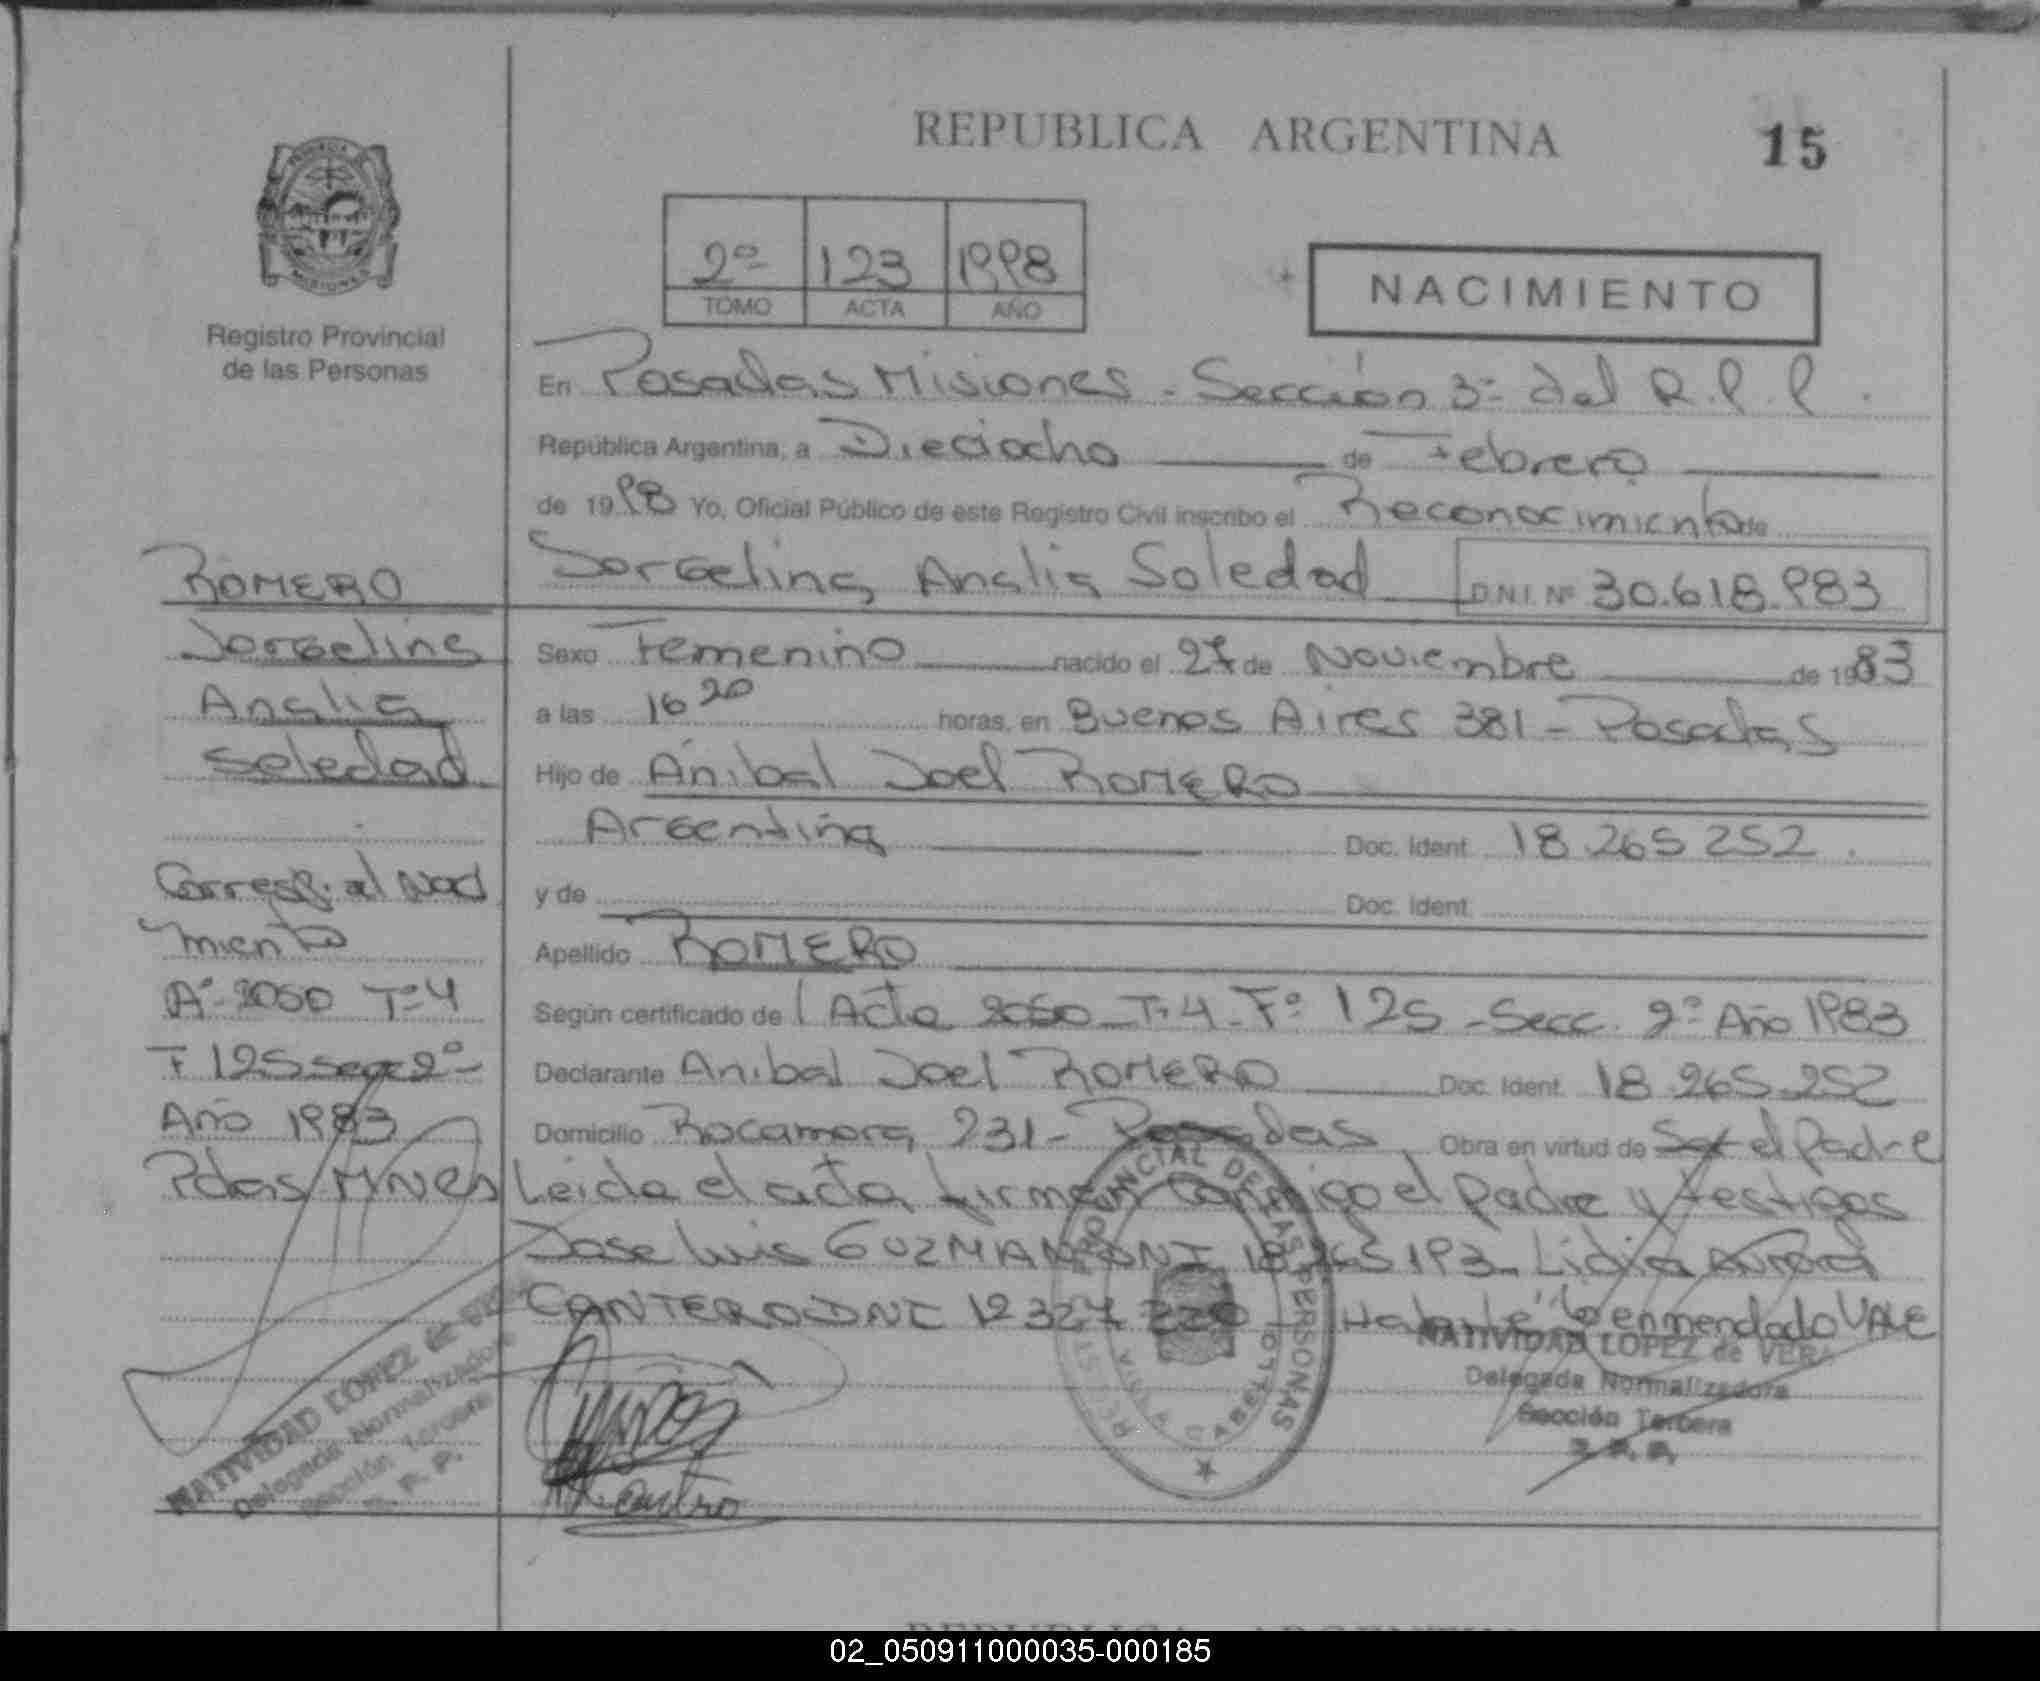 REPUBLICA ARGENTINA
15
PROVINCIA DE
MISIONES
Registro Provincial
de las Personas
2º 123 1998
TOMO ACTA AÑO
NACIMIENTO
En Posadas Misiones - Sección 3ª del R.P.P.
República Argentina, a Dieciocho de Febrero
de 1998 Yo, Oficial Público de este Registro Civil inscribo el Reconocimiento de
Jorgelina Analia Soledad D.N.I. Nº 30.618.983
Sexo Femenino nacido el 27 de Noviembre de 1983
a las 16 20 horas, en Buenos Aires 381 - Posadas
Hijo de Anibal Joel ROMERO
Argentina Doc. Ident. 18.265 252.
y de Doc. Ident.
Apellido ROMERO
Según certificado de l Acta 2050 T:4 - Fº 125 - Secc. 2º Año 1983
Declarante Anibal Joel ROMERO Doc. Ident. 18.265.252
Domicilio Rocamora 231 - Posadas Obra en virtud de Sol el Padre
Leida el acta, firman conmigo el padre y testigos
Jose Luis GUZMAN DNI 193 - Lidia Aurora
CANTERO DNI 12 327 220 - enmendado VALE
ROMERO
Jorgelina
Analia
Soledad
Corresp. al Naci
miento
Aº 2050 T:4
F 125 Secc 2º
Año 1983
Pdas Mnes
NATIVIDAD LOPEZ de VERA
Delegada Normalizadora
Sección Tercera
R. P. P.
REGISTRO PROVINCIAL DE LAS PERSONAS
NATIVIDAD LOPEZ de VERA
Delegada Normalizadora
Sección Tercera
R. P. P.
REPUBLICA ARGENTINA
02_050911000035-000185